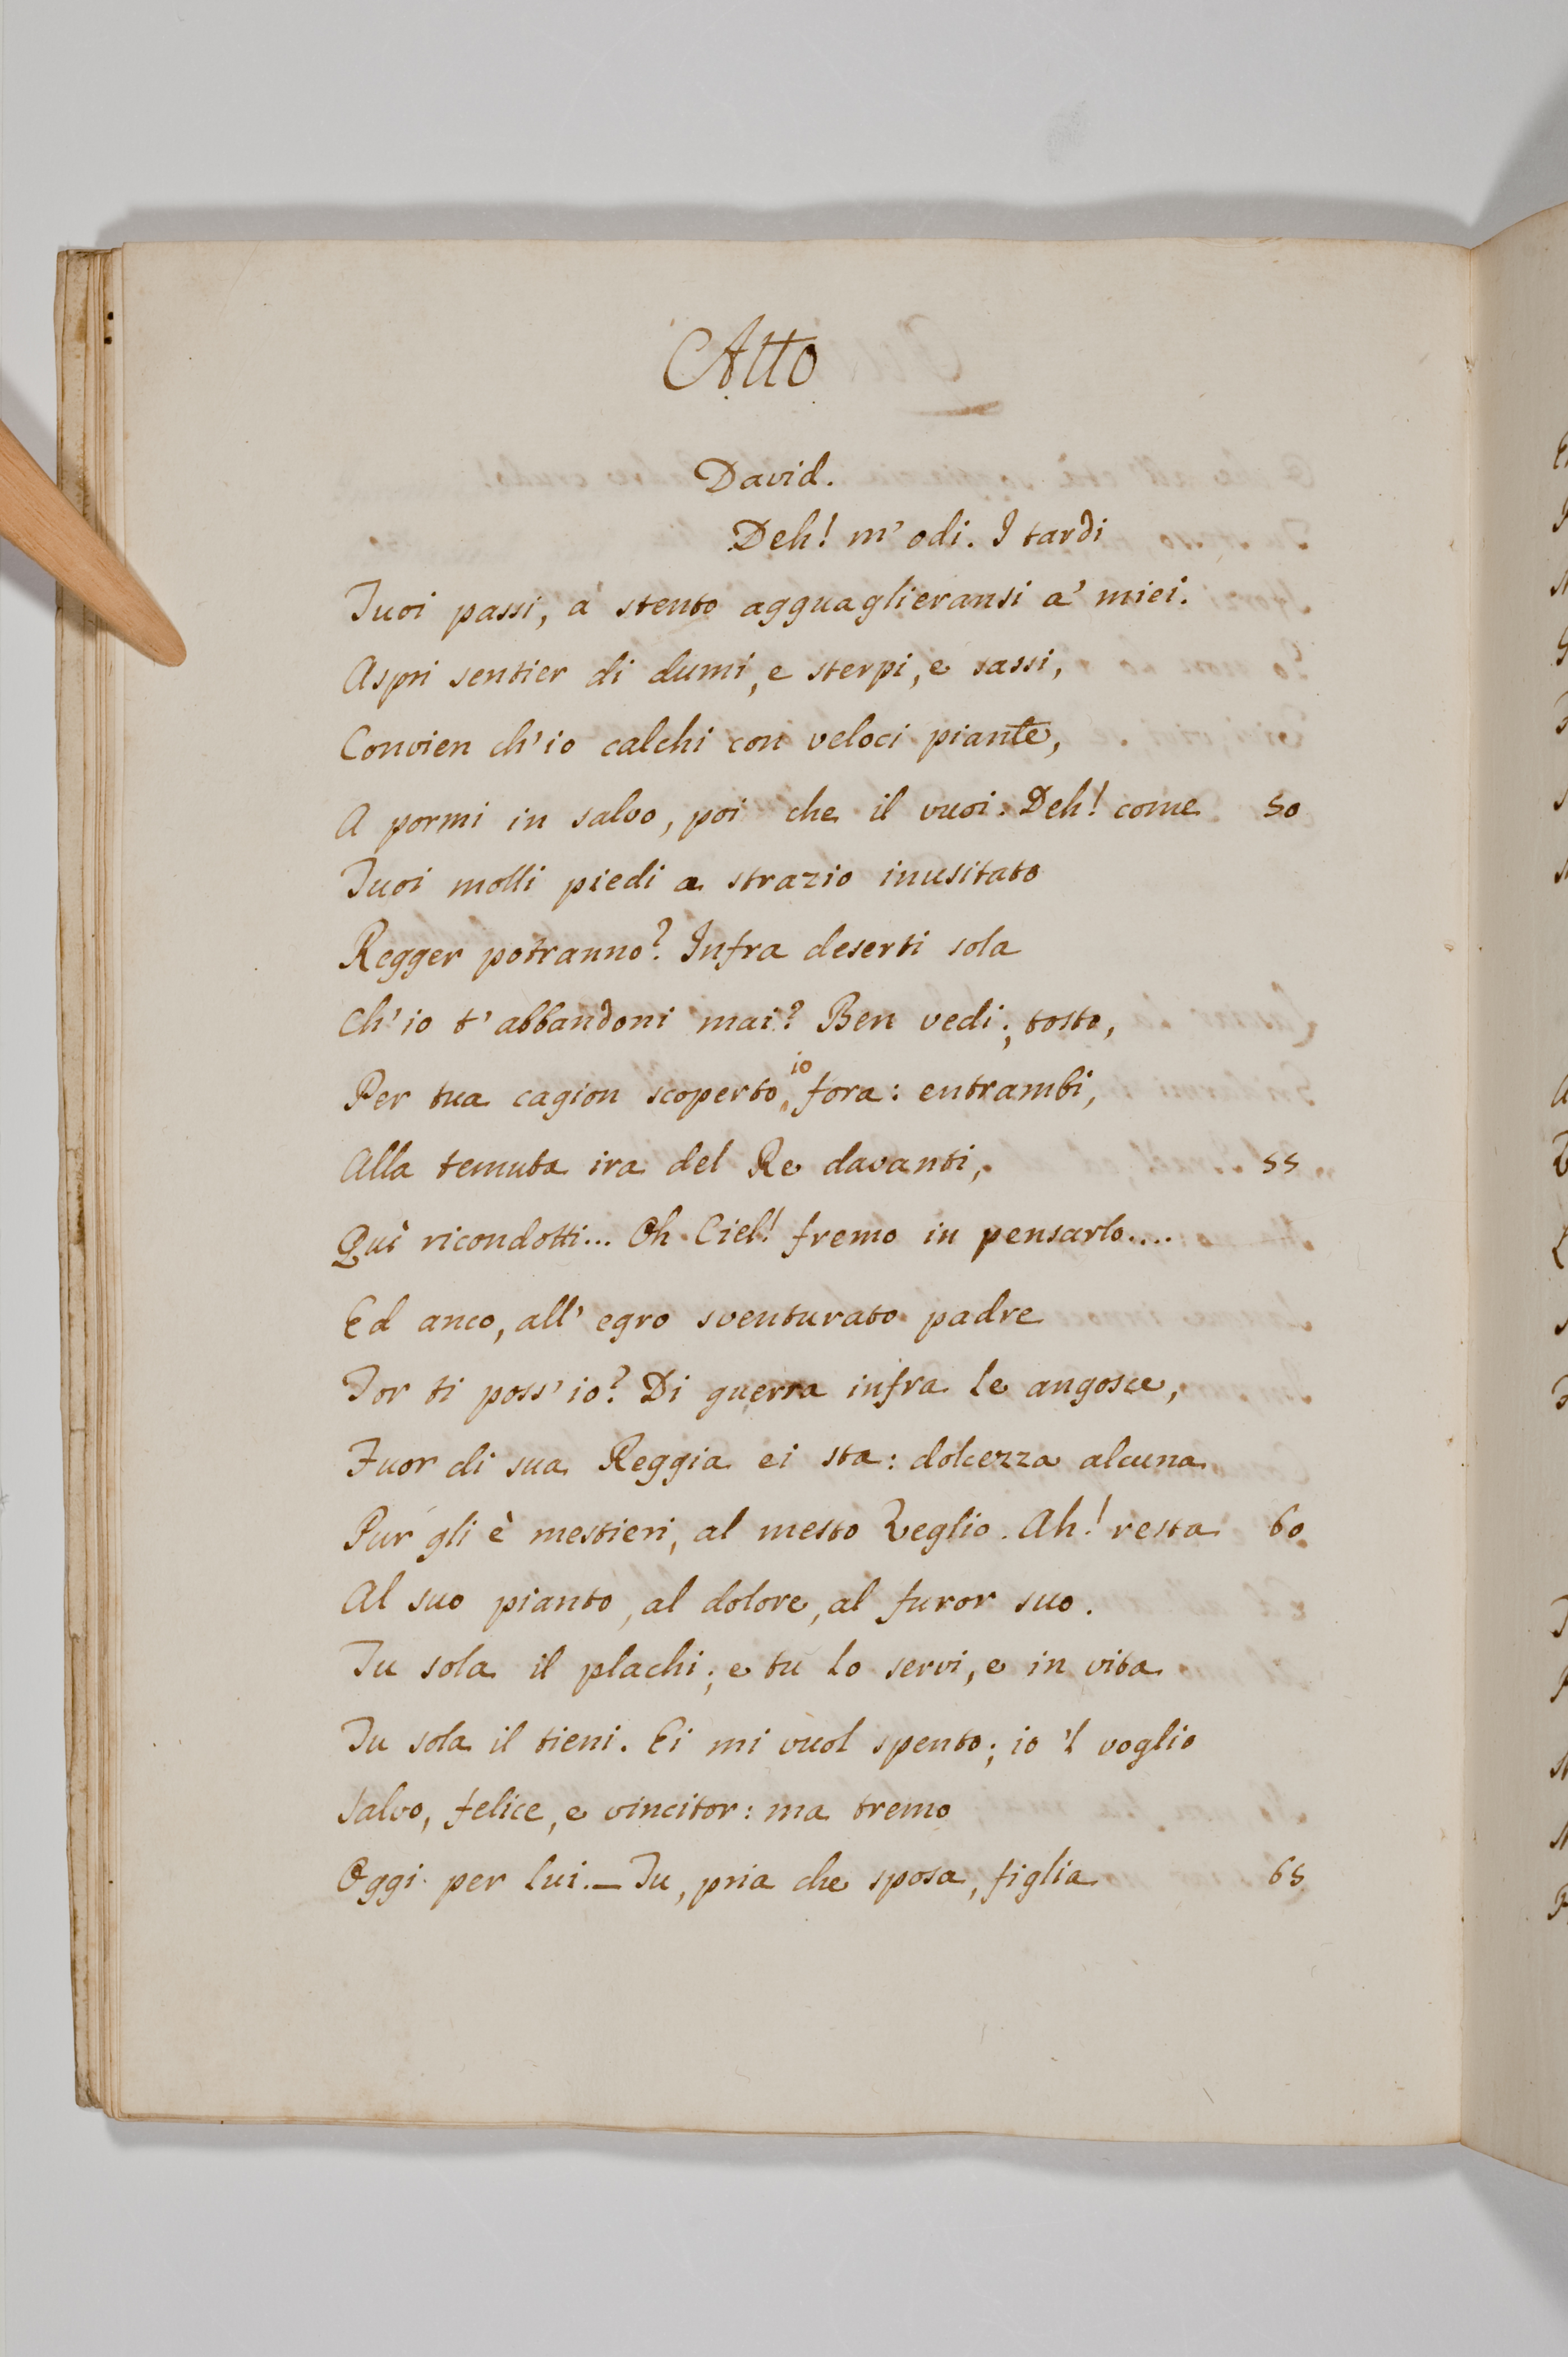 Atto
David.
Deh! m'odi. I tardi
Tuoi passi, a stento agguaglieransi a' miei.
Aspri sentier di dumi, e sterpi, e sassi,
Convien ch'io calchi con veloci piante,
A pormi in salvo, poi che il vuoi. Deh! come 50
Tuoi molli piedi a strazio inusitato
Regger potranno? Infra deserti sola
Ch'io t'abbandoni mai? Ben vedi; tosto,
Per tua cagion scoperto io fora: entrambi,
Alla temuta ira del Re davanti, 55
Quì ricondotti... Oh Ciel! fremo in pensarlo....
Ed anco, all'egro sventurato padre
Tor ti poss'io? Di guerra infra le angosce,
Fuor di sua Reggia ei sta: dolcezza alcuna
Pur gli è mestieri, al mesto Veglio. Ah! resta 60
Al suo pianto, al dolore, al furor suo.
Tu sola il plachi; e tu lo servi, e in vita
Tu sola il tieni. Ei mi vuol spento; io 'l voglio
Salvo, felice, e vincitor: ma tremo
Oggi per lui. — Tu, pria che sposa, figlia 65